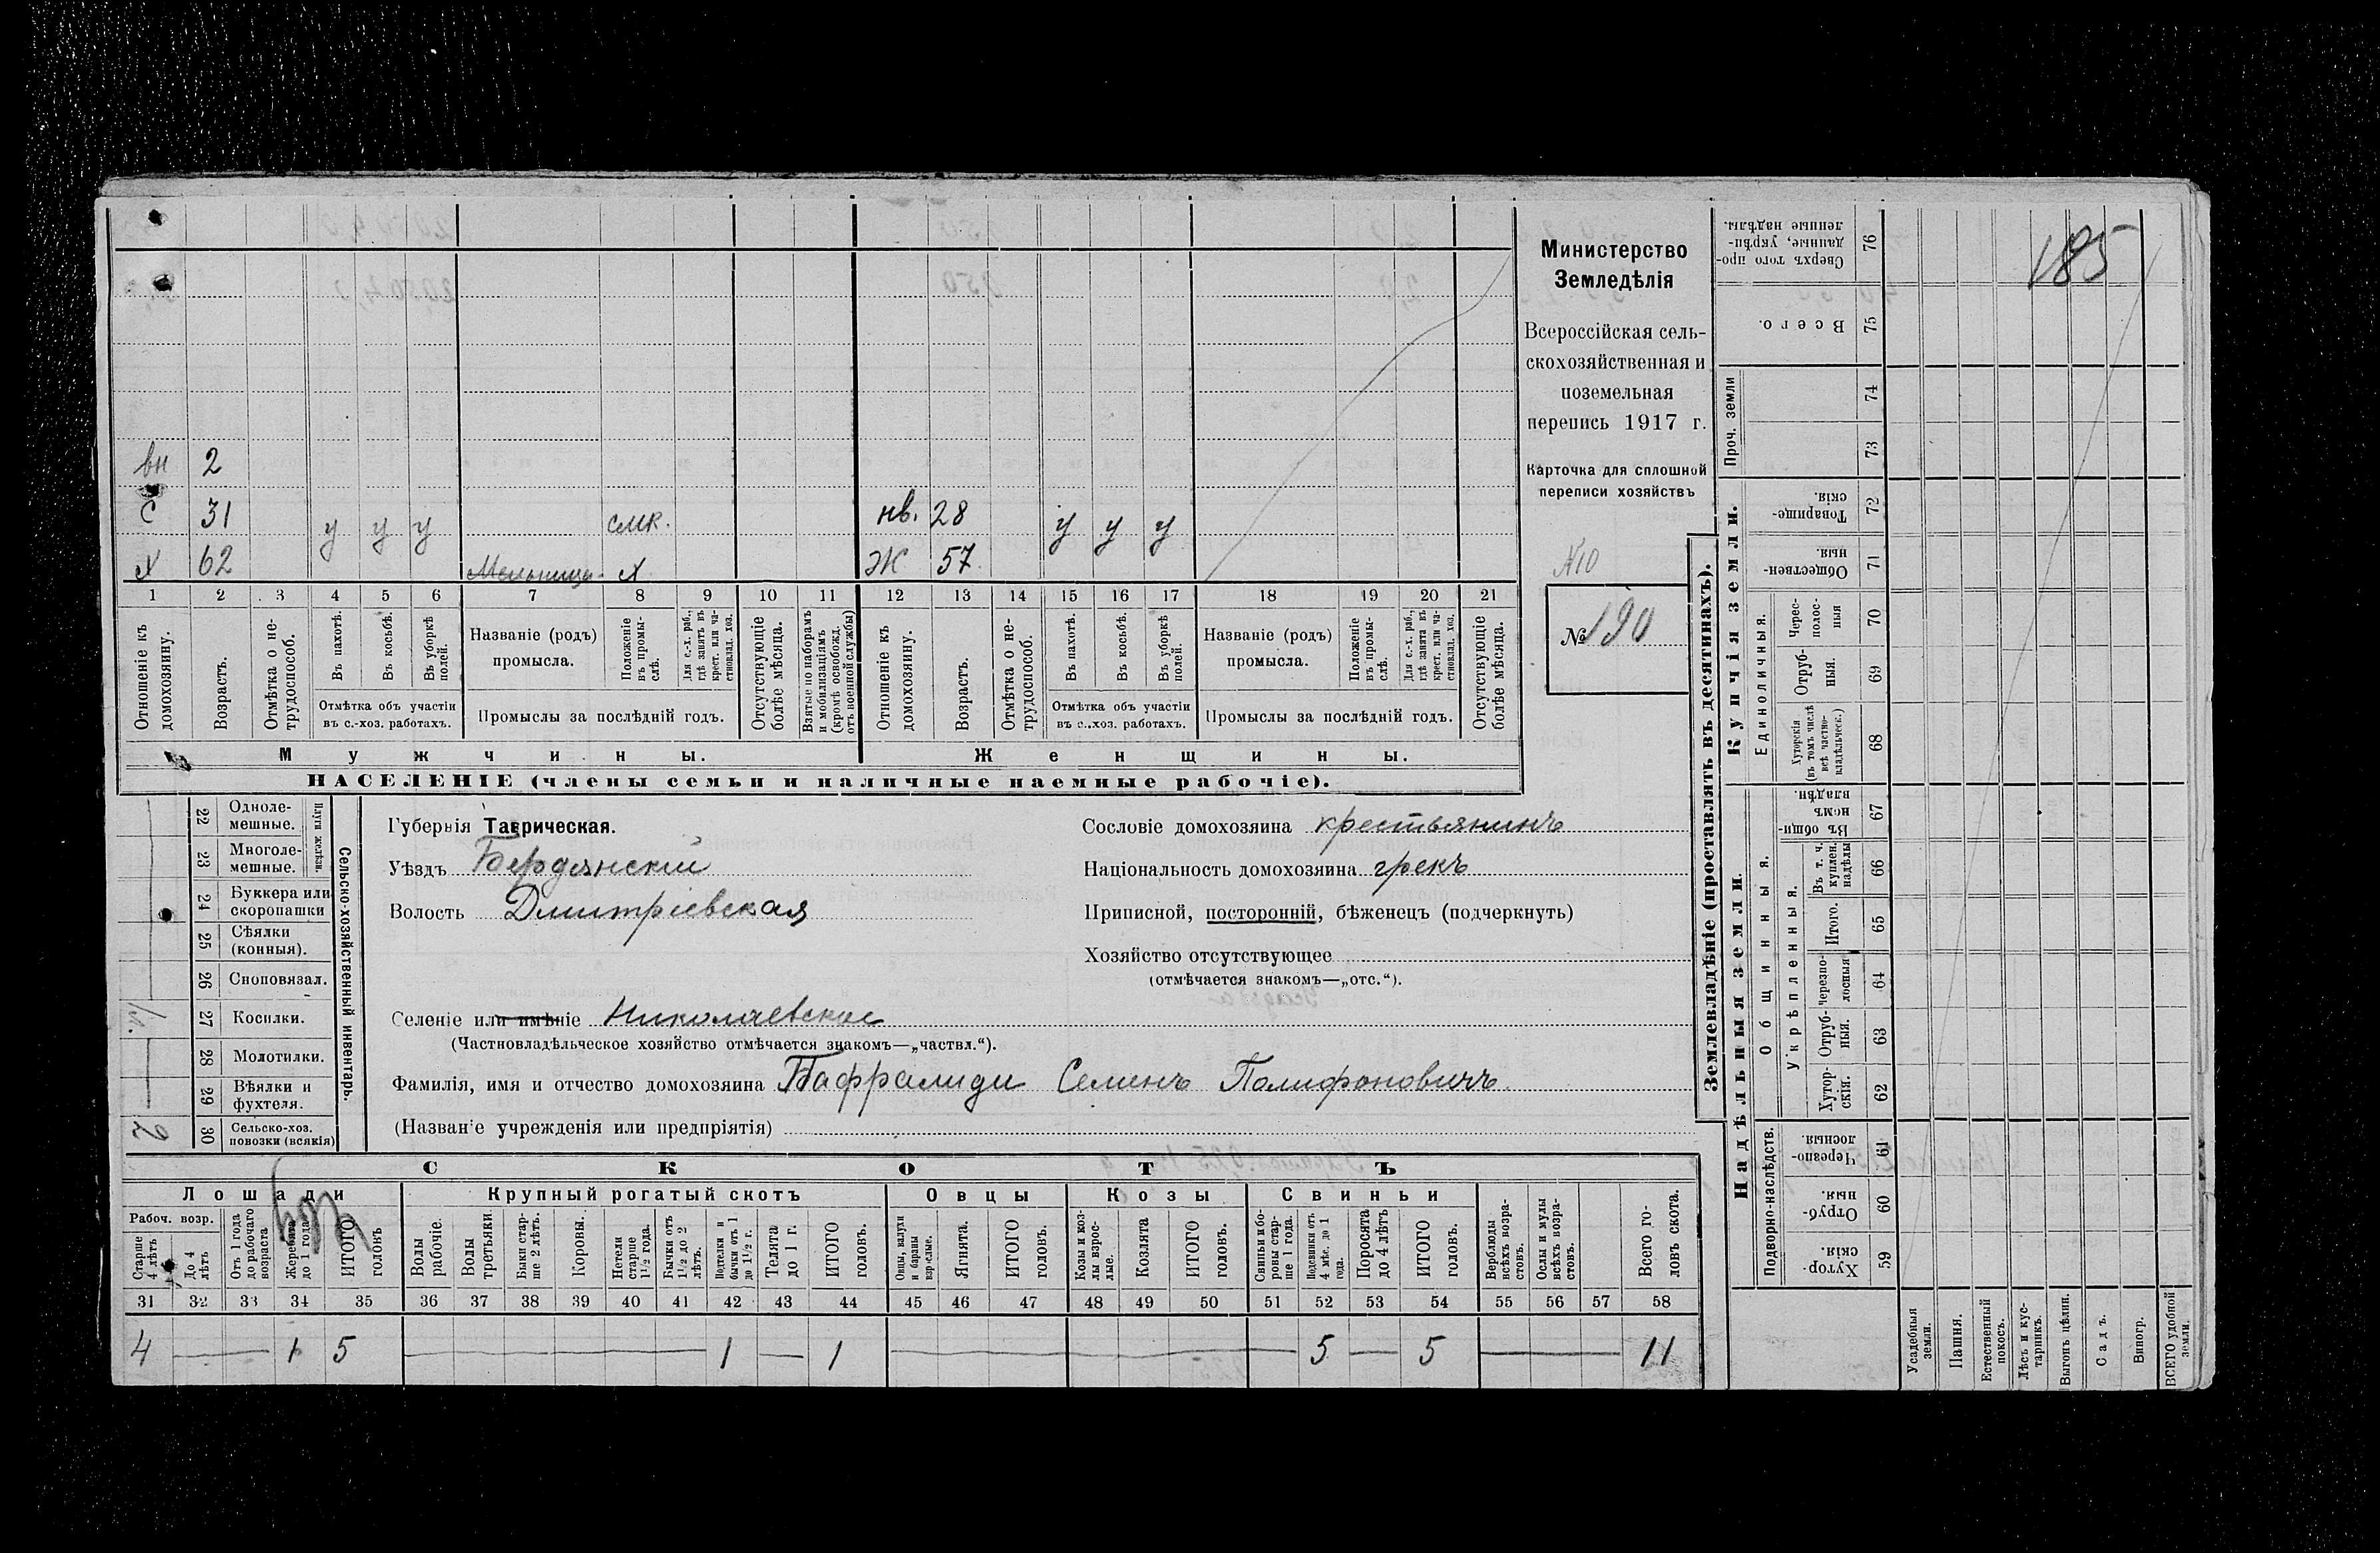 185
Министерство
Земледѣлія
Всероссійская сель-
скохозяйственная и
поземельная
перепись 1917 г.
Карточка для сплошной
переписи хозяйствъ
№10
№ 190
вн 2
с 31 у у у смк. нв. 28 у у у
х 62 Мельница х Ж 57
1 2 3 4 5 6 7 8 9 10 11 12 13 14 15 16 17 18 19 20 21
Отношеніе къ домохозяину.
Возрастъ.
Отмѣтка о не-трудоспособ.
Въ пахотѣ.
Въ косьбѣ.
Въ уборкѣ полей.
Отмѣтка объ участіи
въ с.-хоз. работахъ.
Названіе (родъ)
промысла.
Положеніе въ промы-слѣ.
Для с.-х. раб., гдѣ занятъ въ крест. или ча-стновлад. хоз.
Промыслы за послѣдній годъ.
Отсутствующіе болѣе мѣсяца.
Взятые по наборамъ и мобилизаціямъ (кромѣ освобожд. отъ военной службы)
Отношеніе къ домохозяину.
Возрастъ.
Отмѣтка о не-трудоспособ.
Въ пахотѣ.
Въ косьбѣ.
Въ уборкѣ полей.
Отмѣтка объ участіи
въ с.-хоз. работахъ.
Названіе (родъ)
промысла.
Положеніе въ промы-слѣ.
Для с.-х. раб., гдѣ занятъ въ крест. или ча-стновлад. хоз.
Промыслы за послѣдній годъ.
Отсутствующіе болѣе мѣсяца.
Мужчины. Женщины.
НАСЕЛЕНІЕ (члены семьи и наличные наемные рабочіе).
22 Одноле-мешные.
23 Многоле-мешные.
Плуги желѣзн.
24 Буккера или скоропашки
25 Сѣялки (конныя).
26 Сноповязал.
27 Косилки.
28 Молотилки.
29 Вѣялки и фухтеля.
30 Сельско-хоз. повозки (всякія)
2
Сельско-хозяйственный инвентарь.
Губернія Таврическая.
Уѣздъ Бердянскій
Волость Дмитріевская
Сословіе домохозяина крестьянинъ
Національность домохозяина грекъ
Приписной, посторонній, бѣженецъ (подчеркнуть)
Хозяйство отсутствующее
(отмѣчается знакомъ—„отс.“).
Селеніе или имѣніе Николаевское
(Частновладѣльческое хозяйство отмѣчается знакомъ—„частвл.“).
Фамилія, имя и отчество домохозяина Пафралиди Семенъ Полифоновичъ
(Названіе учрежденія или предпріятія)
СКОТЪ
Лошади Крупный рогатый скотъ Овцы Козы Свиньи
Рабоч. возр.
Старше 4 лѣтъ
До 4 лѣтъ
Отъ 1 года до рабочаго возраста
Жеребята до 1 года
ИТОГО головъ
Волы рабочіе.
Волы третьяки.
Быки стар-ше 2 лѣтъ.
Коровы.
Нетели старше 1½ года.
Бычки отъ 1½ до 2 лѣтъ.
Подтелки и бычки отъ 1 до 1½ г.
Телята до 1 г.
ИТОГО головъ.
Овцы, валухи и бараны взрослые.
Ягнята.
ИТОГО головъ.
Козы и коз-лы взрос-лые.
Козлята
ИТОГО головъ.
Свиньи и бо-ровы стар-ше 1 года.
Подсвинки отъ 4 мѣс. до 1 года.
Поросята до 4 лѣтъ
ИТОГО головъ.
Верблюды всѣхъ возра-стовъ.
Ослы и мулы всѣхъ возра-стовъ.
Всего го-ловъ скота.
31 32 33 34 35 36 37 38 39 40 41 42 43 44 45 46 47 48 49 50 51 52 53 54 55 56 57 58
4 1 5 1 1 5 5 11
Землевладѣніе (проставлять въ десятинахъ).
Купчія земли.
Надѣльныя земли.
Сверхъ того про-данные, укрѣп-ленные надѣлы. 76
Всего. 75
Проч. земли 74 73
Товарище-скія. 72
Обществен-ныя. 71
Единоличныя.
Черес-полос-ныя 70
Отруб-ныя. 69
Хуторскія (въ томъ числѣ всѣ частно-владѣльческ.) 68
Общинныя.
Въ общи-номъ владѣн. 67
Укрѣпленныя.
Въ т. ч. куплен. надѣлы 66
Итого. 65
Черезпо-лосныя 64
Отруб-ныя. 63
Хутор-скія. 62
Подворно-наслѣдств.
Черезпо-лосныя. 61
Отруб-ныя. 60
Хутор-скія. 59
Усадебныя земли.
Пашня.
Естественный покосъ.
Лѣсъ и кус-тарникъ.
Выгонъ цѣлин.
Садъ.
Виногр.
ВСЕГО удобной земли.